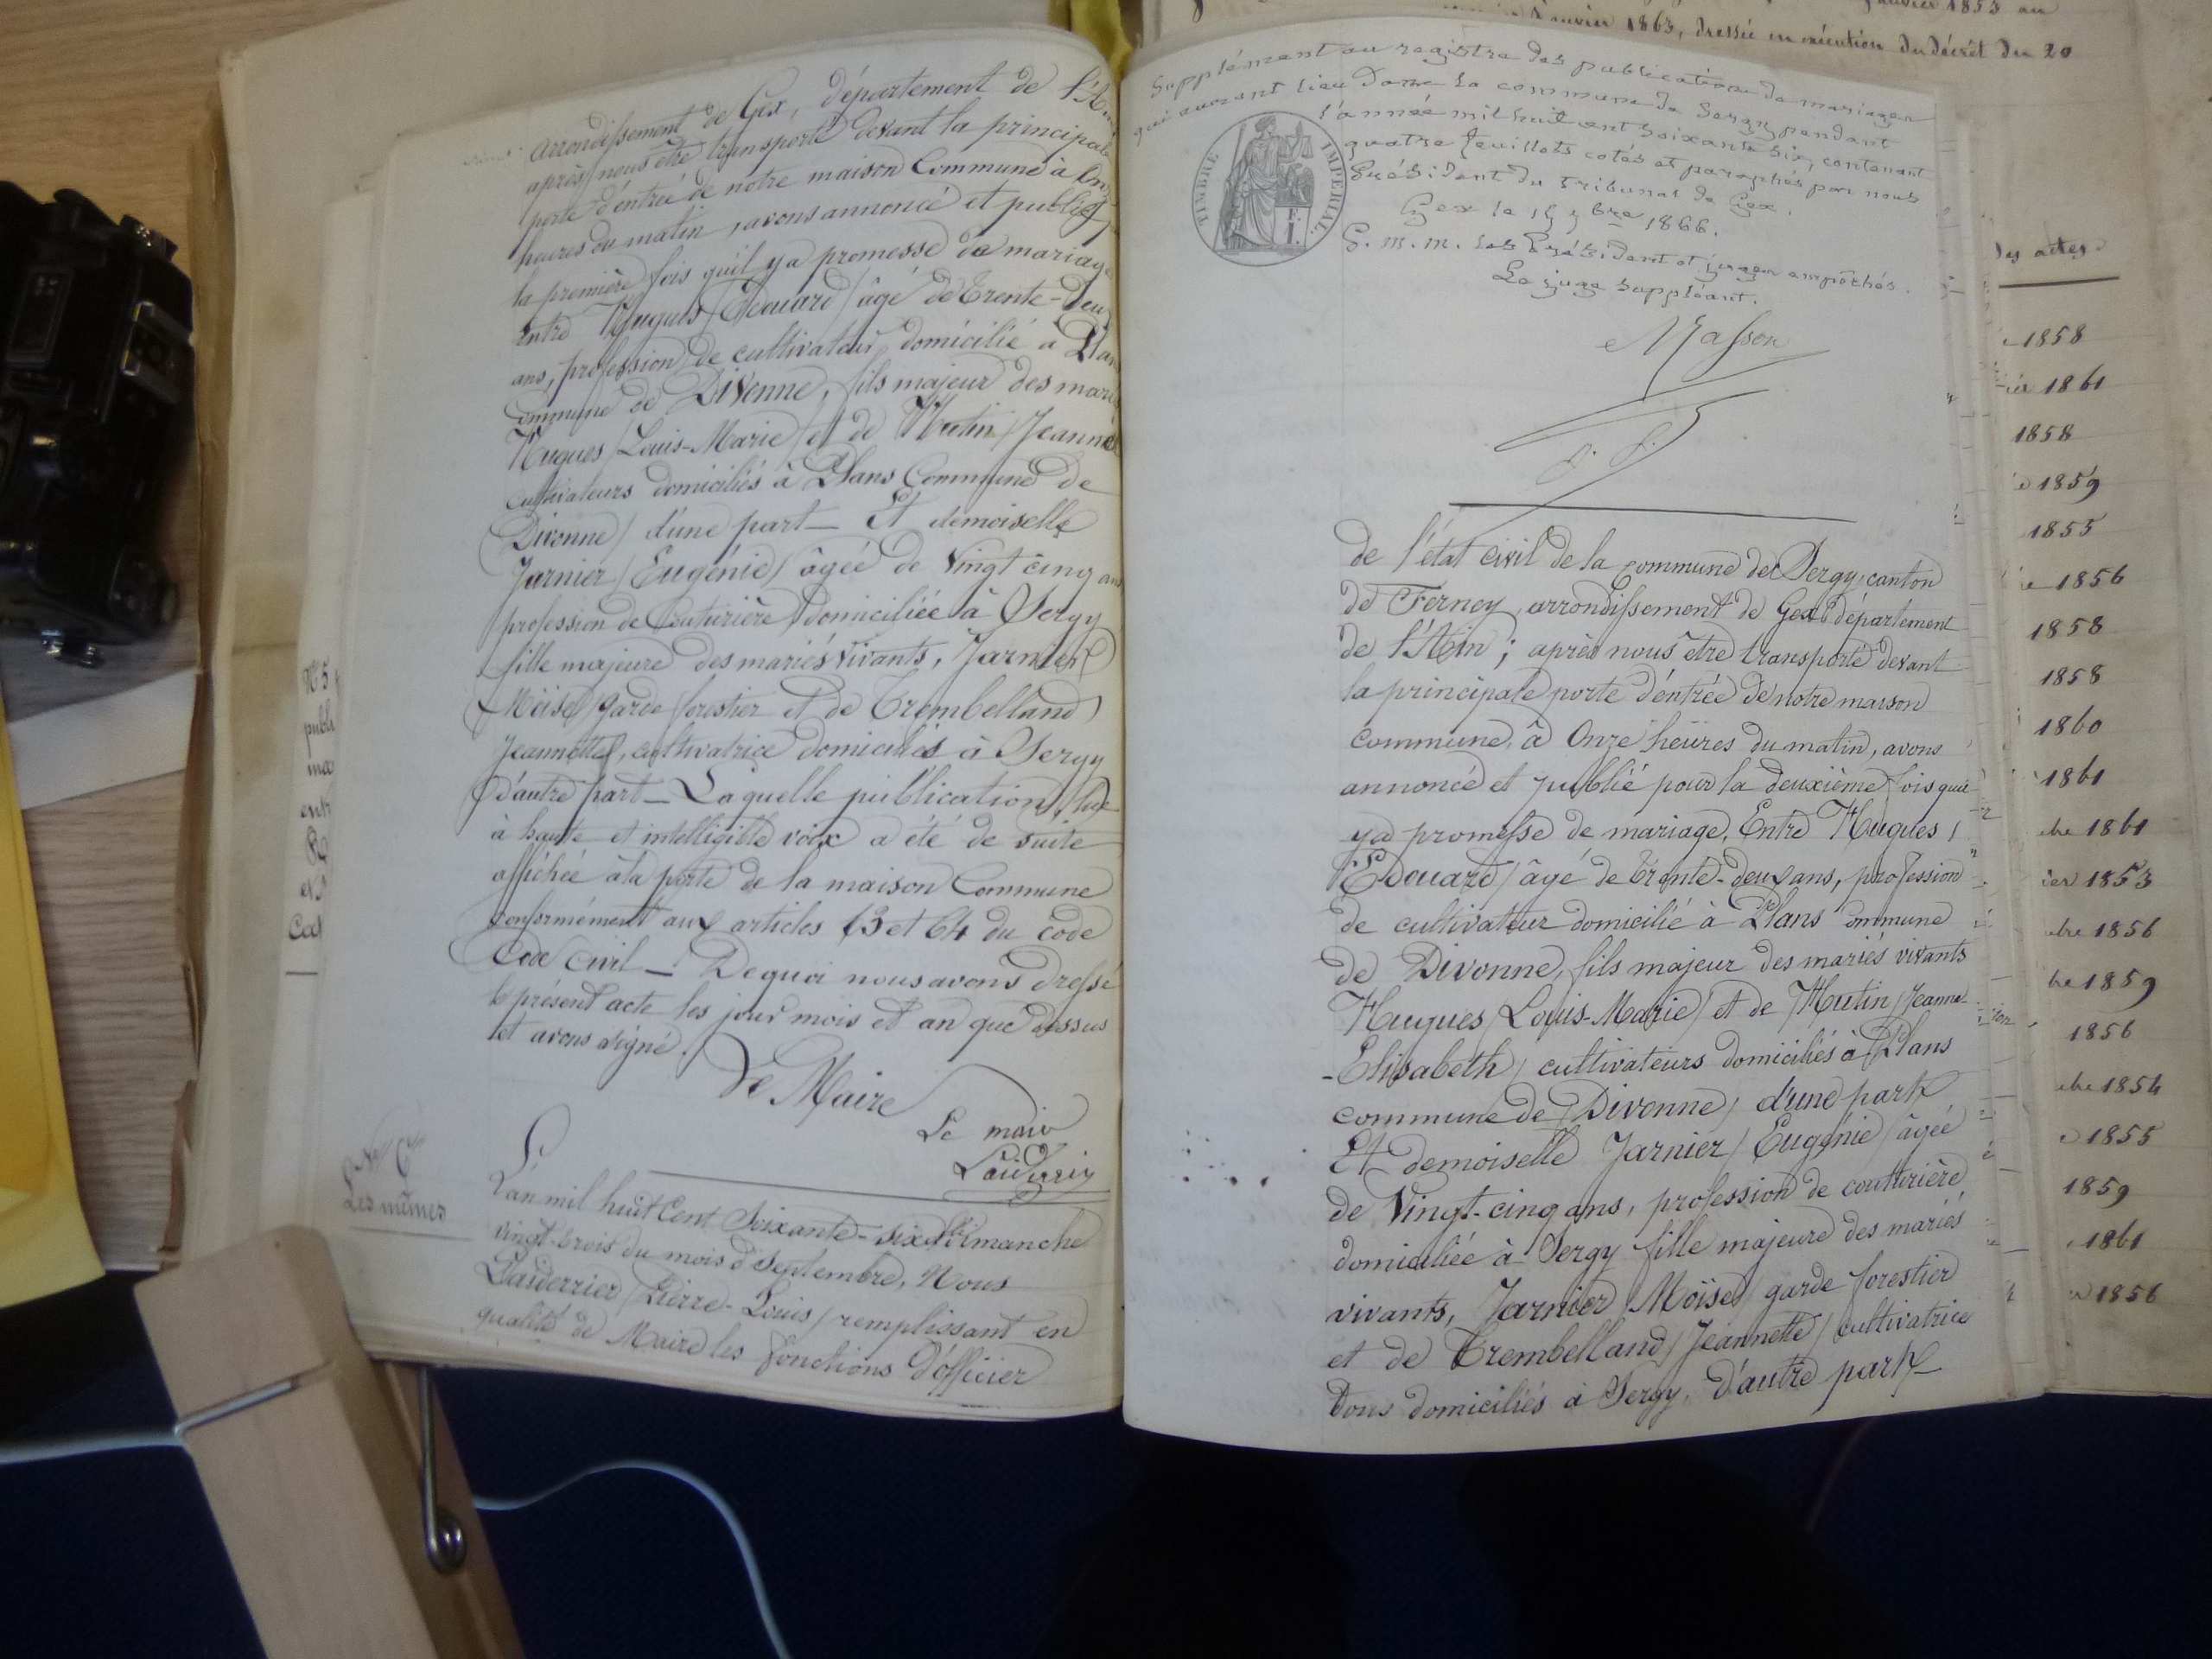 arrondissement de Gex, département de l'Ain
après nous être transporté devant la principale
porte d'entrée de notre maison Commune à Onze
heures du matin, avons annoncé et publié
la première fois qu'il y a promesse de mariage
Entre Hugues (Edouard) âgé de Trente-deux
ans, profession de cultivateur domicilié à Plans
commune de Divonne, fils majeur des mariés
Hugues (Louis-Marie) et de Mutin (Jeanne
cultivateurs domiciliés à Plans Commune de
Divonne) d'une part — Et demoiselle
Jarnier (Eugénie) âgée de Vingt cinq ans
profession de Couturière domiciliée à Sergy
fille majeure des mariés vivants, Jarnier
Moïse garde forestier et de Trembelland
Jeannette, cultivatrice domiciliés à Sergy
d'autre part — Laquelle publication, lue
à haute et intelligible voix a été de suite
affichée à la porte de la maison Commune
conformément aux articles 63 et 64 du code
Code civil — De quoi nous avons dressé
le présent acte les jour mois et an que dessus
et avons signé.
Le Maire
Le maire
N° 6
Les mêmes
L'an mil huit Cent Soixante-six dimanche
vingt-trois du mois de Septembre, Nous
Laiderrier (Pierre-Louis) remplissant en
qualité de Maire les fonctions d'officier
N° 5
publi
ma
entr
Cod
Supplément au registre des publications de mariages
qui auront lieu dans la commune de Sergy pendant
l'année mil huit cent soixante six, contenant
quatre feuillets cotés et paraphés par nous
Président du Tribunal de Gex.
1866.
P. M. M. les Président et juges empêchés.
Le juge suppléant.
Masson
TIMBRE IMPÉRIAL
de l'état civil de la commune de Sergy, canton
de Ferney, arrondissement de Gex département
de l'Ain ; après nous être transporté devant
la principale porte d'entrée de notre maison
commune, à Onze heures du matin, avons
annoncé et publié pour la deuxième fois qu'il
y a promesse de mariage, Entre Hugues (
Edouard) âgé de Trente-deux ans, profession
de cultivateur domicilié à Plans Commune
de Divonne, fils majeur des mariés vivants
Hugues (Louis-Marie) et de Mutin (Jeanne-
-Elisabeth) cultivateurs domiciliés à Plans
commune de Divonne) d'une part
Et demoiselle Jarnier (Eugénie) âgée
de Vingt-cinq ans, profession de couturière
domiciliée à Sergy fille majeure des mariés
vivants, Jarnier (Moïse) garde forestier
et de Trembelland (Jeannette) cultivatrice
Tous domiciliés à Sergy, d'autre part —
janvier 1853 au
janvier 1863, dressée en exécution du décret du 20
des actes
1858
1861
1858
1859
1855
1856
1858
1858
1860
1861
bre 1861
ier 1853
bre 1856
bre 1859
1856
bre 1854
1855
1859
1861
1856